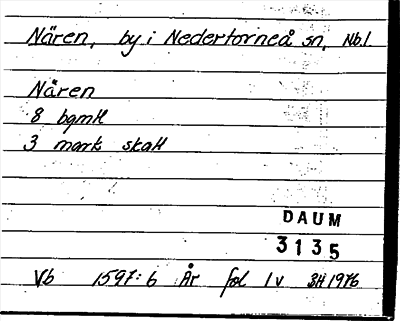 Nären, by i Nedertorneå sn, Nb.l.
Nären
8 bgmtl
3 mark skatt
DAUM
3135
Vb 1597:6 År fol 1v 3H 1976